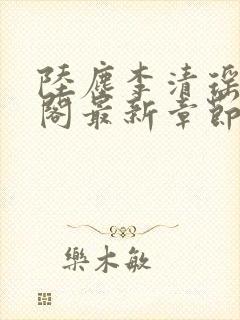 陸塵李清瑤
閣最新章節
樂木敏